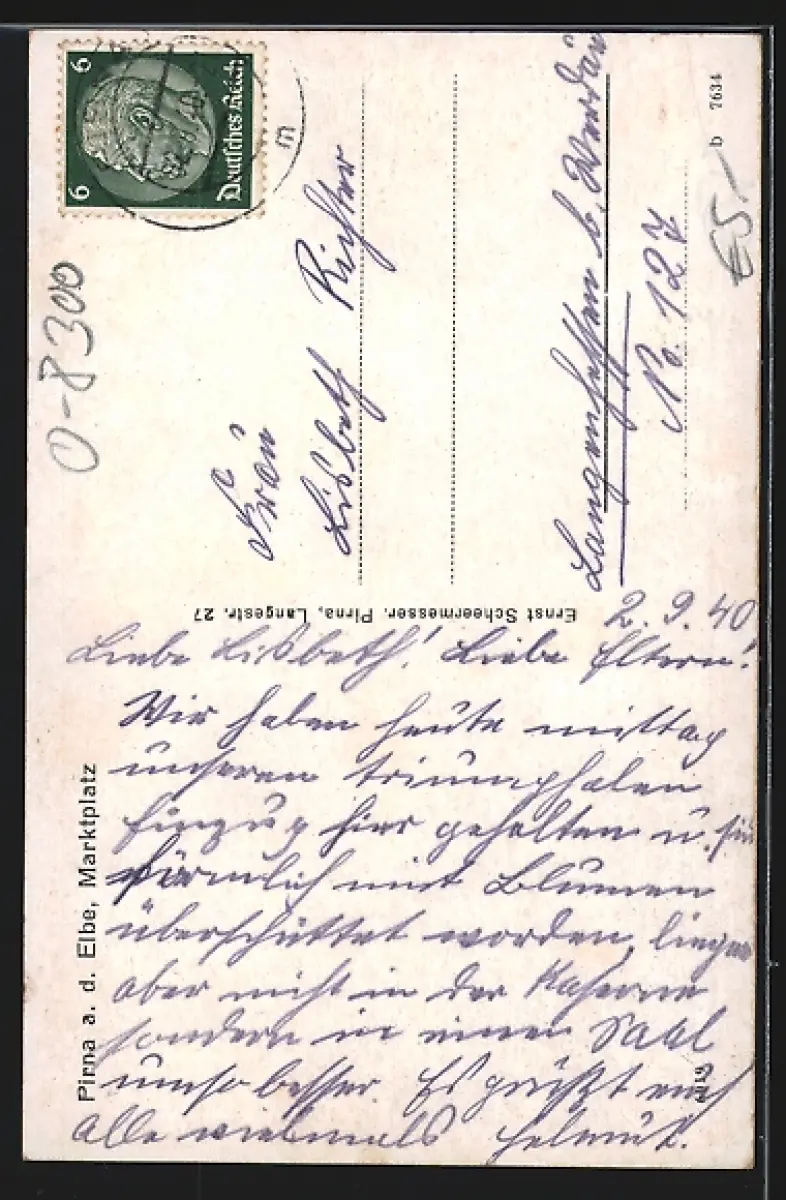 6
6
Deutsches Reich
E
0-8300
Frau
Lisbeth Richter
Langenhessen b. Werdau
No. 127
€5.-
b 7634
Ernst Scheermesser, Pirna, Langestr. 27
Pirna a. d. Elbe, Marktplatz
2.9.40
Liebe Lisbeth! Liebe Eltern!
Wir haben heute mittag
unseren triumphalen
Einzug hier gehalten u. sin
förmlich mit Blumen
überschüttet worden, liegen
aber nicht in der Kaserne
sondern in einem Saal
umso besser. Es grüßt euch
alle vielmals Helmut.